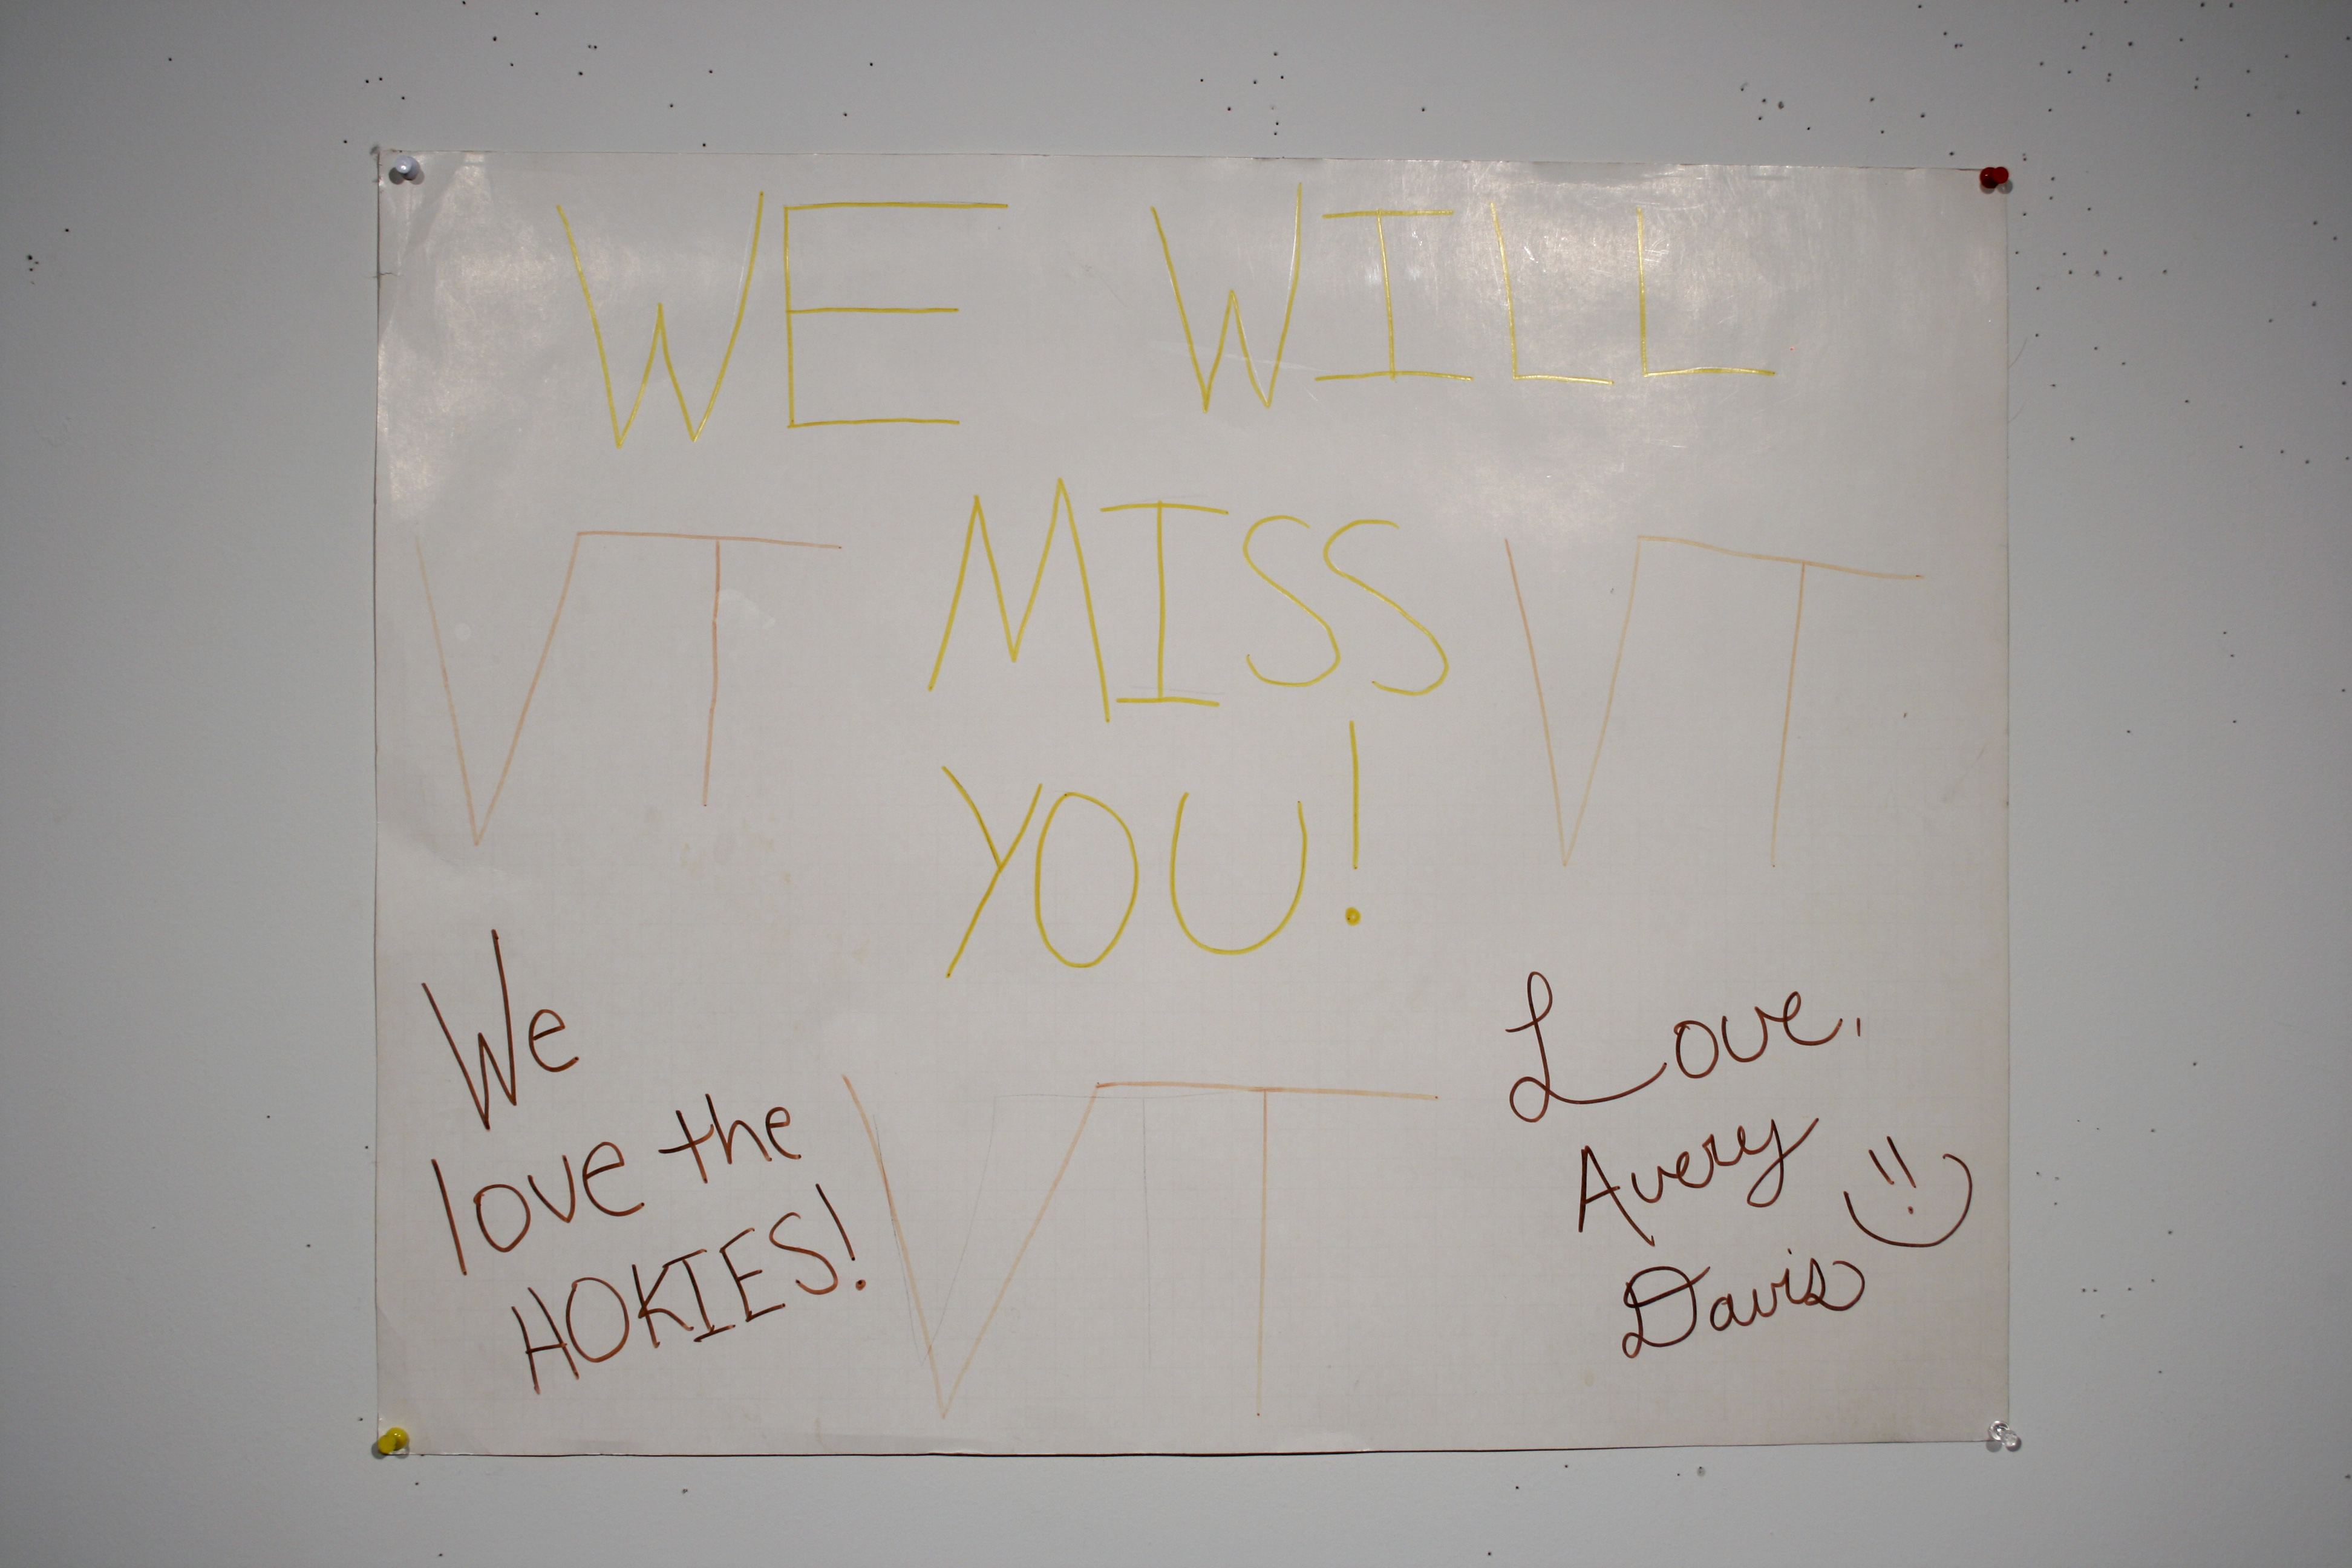 WE WILL
MISS
VT VT
YOU!
We
love the
HOKIES!
VT
Love,
Avery
Davis